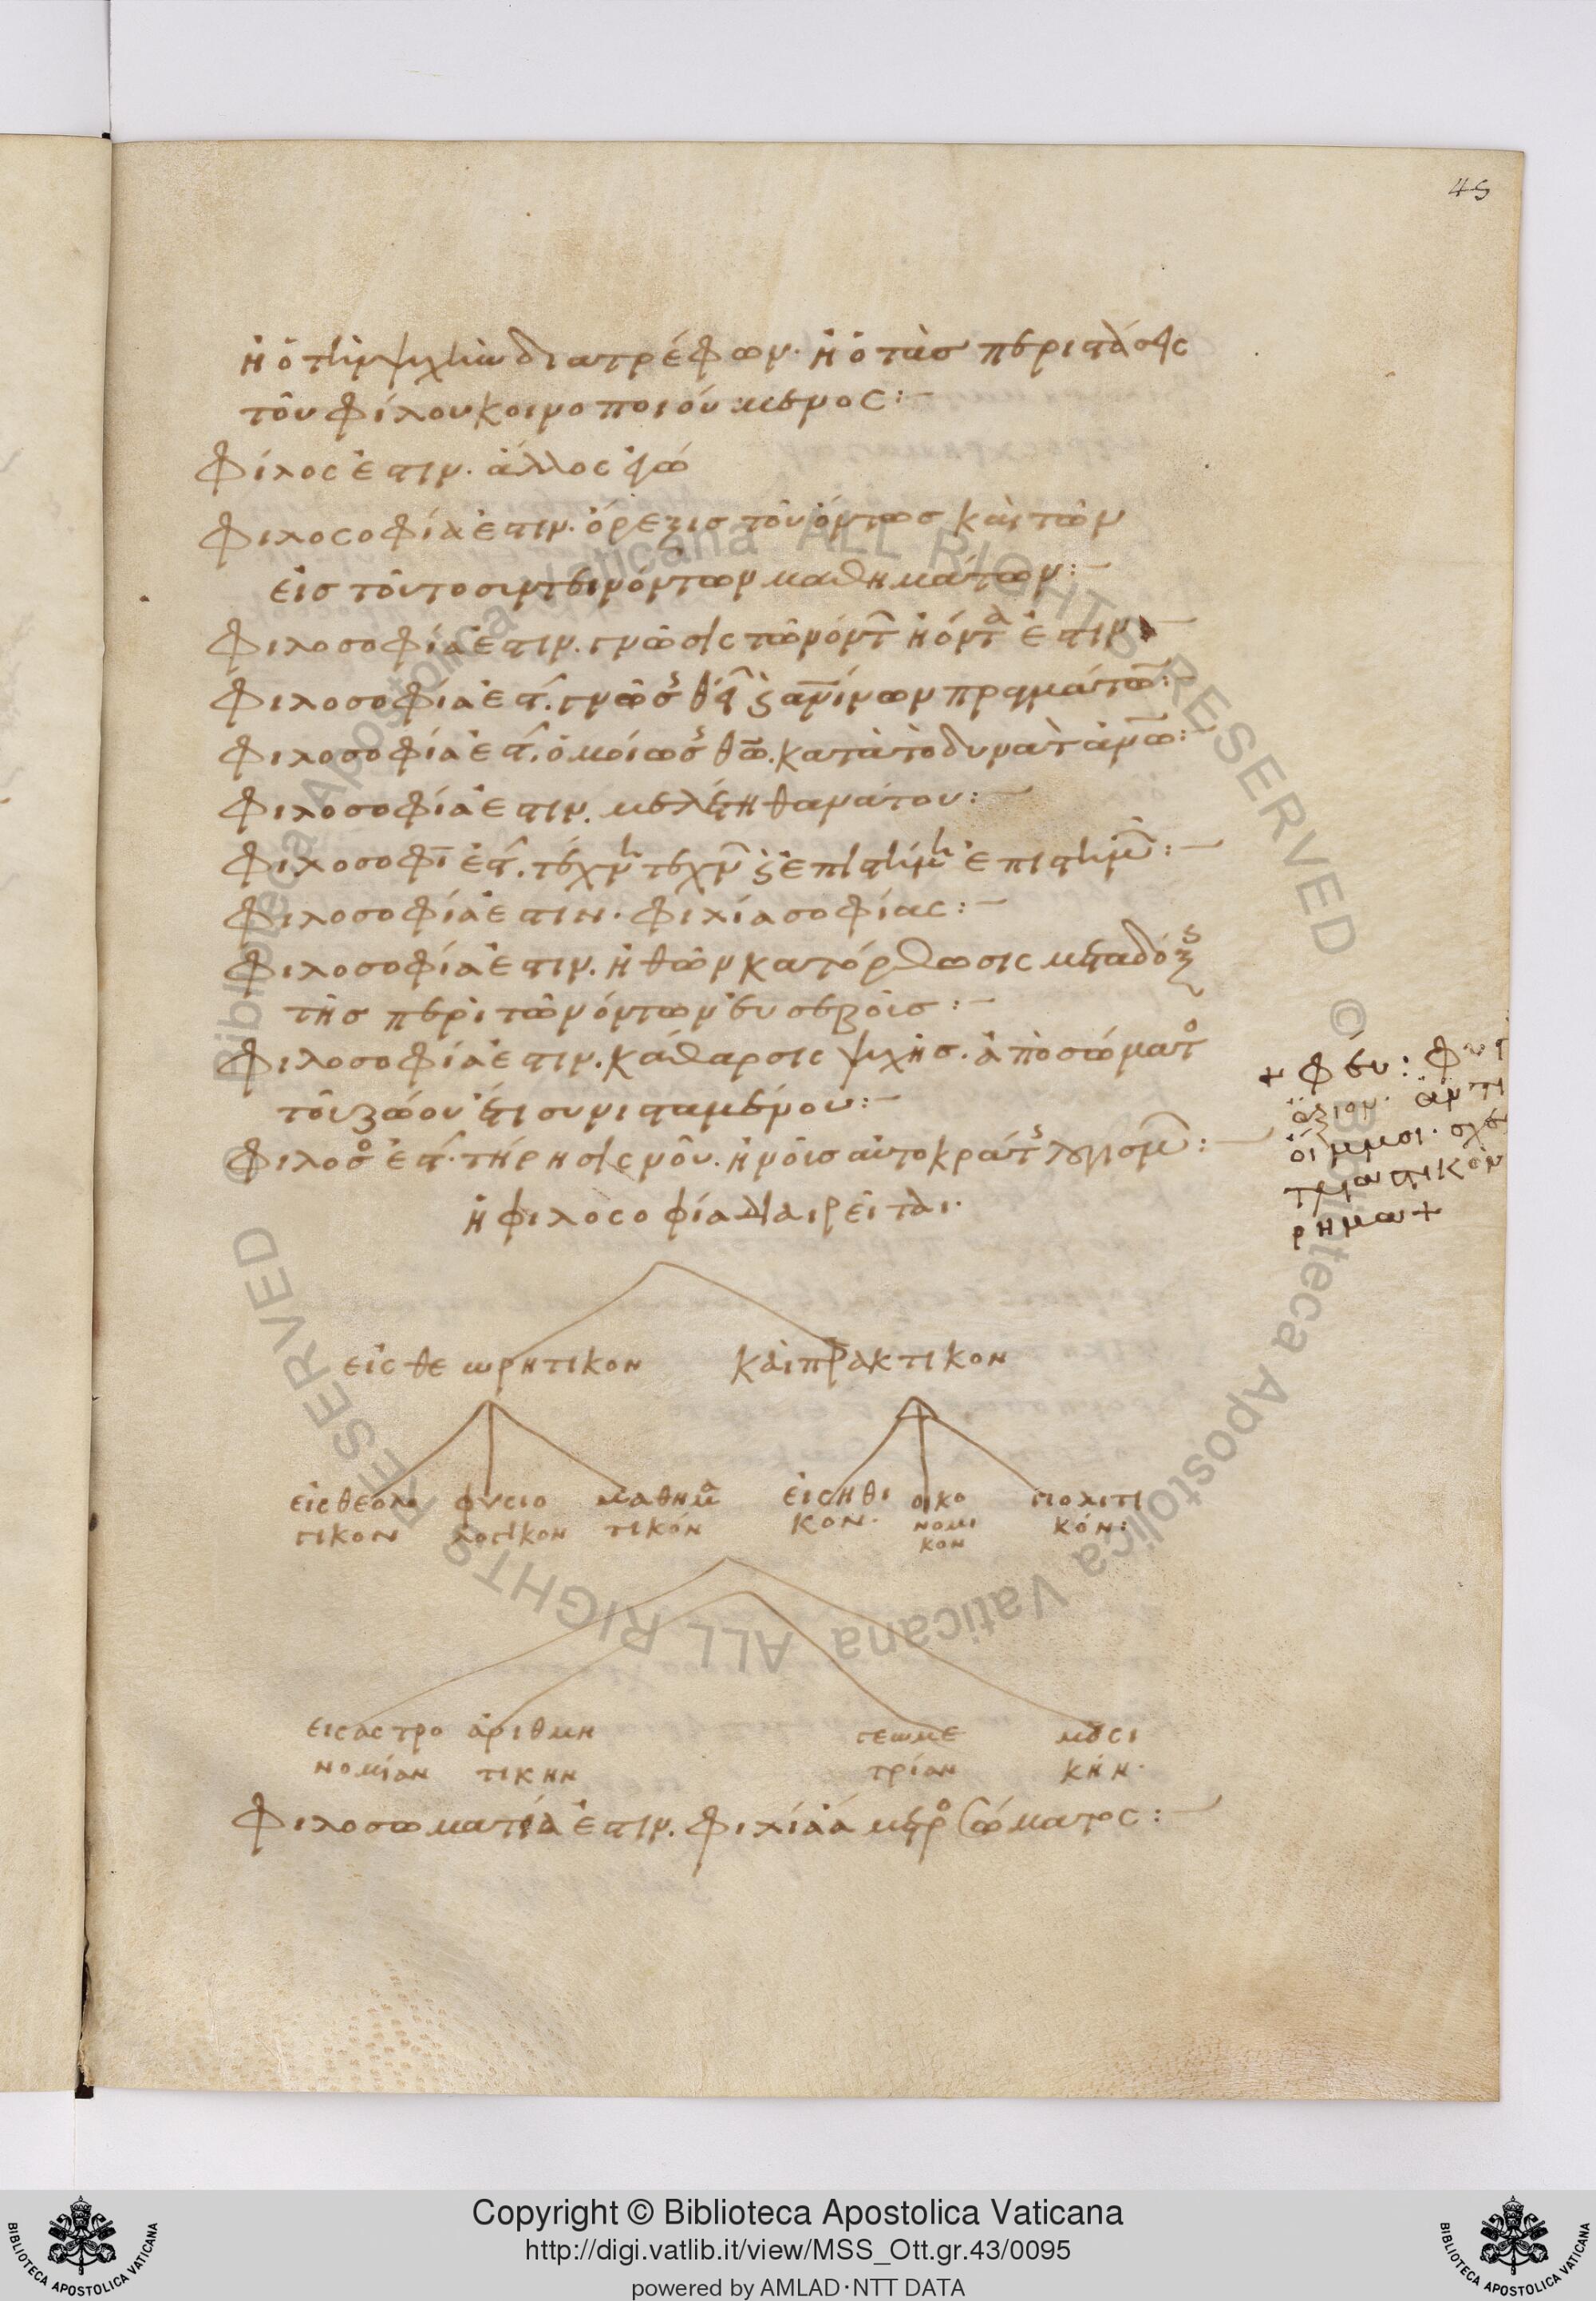 45
ἢ ὁ τὴν ψυχὴν διατρέφων· ἢ ὁ τὰς περιστάσεις
τοῦ φίλου κοινοποιούμενος:-
Φίλος ἐστιν· ἄλλος ἐγώ
Φιλοσοφία ἐστιν· ὄρεξις τοῦ ὄντως καὶ τῶν
εἰς τοῦτο συντεινόντων μαθημάτων:-
Φιλοσοφία ἐστιν· γνῶσις τῶν ὄντ ἢ ὄντα ἐστιν
Φιλοσοφία ἐστ· γνῶσ θεί κ ἀνίνων πραγμάτω:-
Φιλοσοφία ἐστ· ὁμοίωσ θω· κατὰ το δυνατ ἀνω:-
Φιλοσοφία ἐστιν· μελέτη θανάτου:-
Φιλοσοφι ἐστ· τέχνη τεχν κ ἐπιστήμη ἐπιστημ:-
Φιλοσοφία ἐστιν· φιλία σοφίας:-
Φιλοσοφία ἐστιν· ἠθῶν κατόρθωσις μετα δόξ
τῆς περὶ τῶν ὄντων εὐσεβοῖς:-
Φιλοσοφία ἐστιν· κάθαρσις ψυχῆς· ἀπὸ σώματο
τοῦ ζώου ἔτι συνισταμένου:-
Φιλοσο ἐστ· τήρησις νοῦ· ἢ νόις αὐτοκράτ λογισμ:-
ἡ φιλοσοφία διαιρεῖται·
εἰς θεωρητικον καὶ πρακτικον
εἰς θεολο φυσιο μαθημα εἰς ηθι οικο πολιτι
γικον λογικον τικόν κον· νομι κόν:
κον
εις αστρο ἀριθμη γεωμε μουσι
νομίαν τικην τρίαν κήν·
Φιλοσωματία ἐστιν· φιλία ἄμετρο σώματος:-
+ φευ: φ
ἄξιον·
οἴμμοι· σχε
τλιαστικὸν
ρημα+
Copyright © Biblioteca Apostolica Vaticana
http://digi.vatlib.it/view/MSS_Ott.gr.43/0095
powered by AMLAD·NTT DATA
BIBLIOTECA APOSTOLICA VATICANA
BIBLIOTECA APOSTOLICA VATICANA
© Biblioteca Apostolica Vaticana ALL RIGHTS RESERVED
© Biblioteca Apostolica Vaticana ALL RIGHTS RESERVED